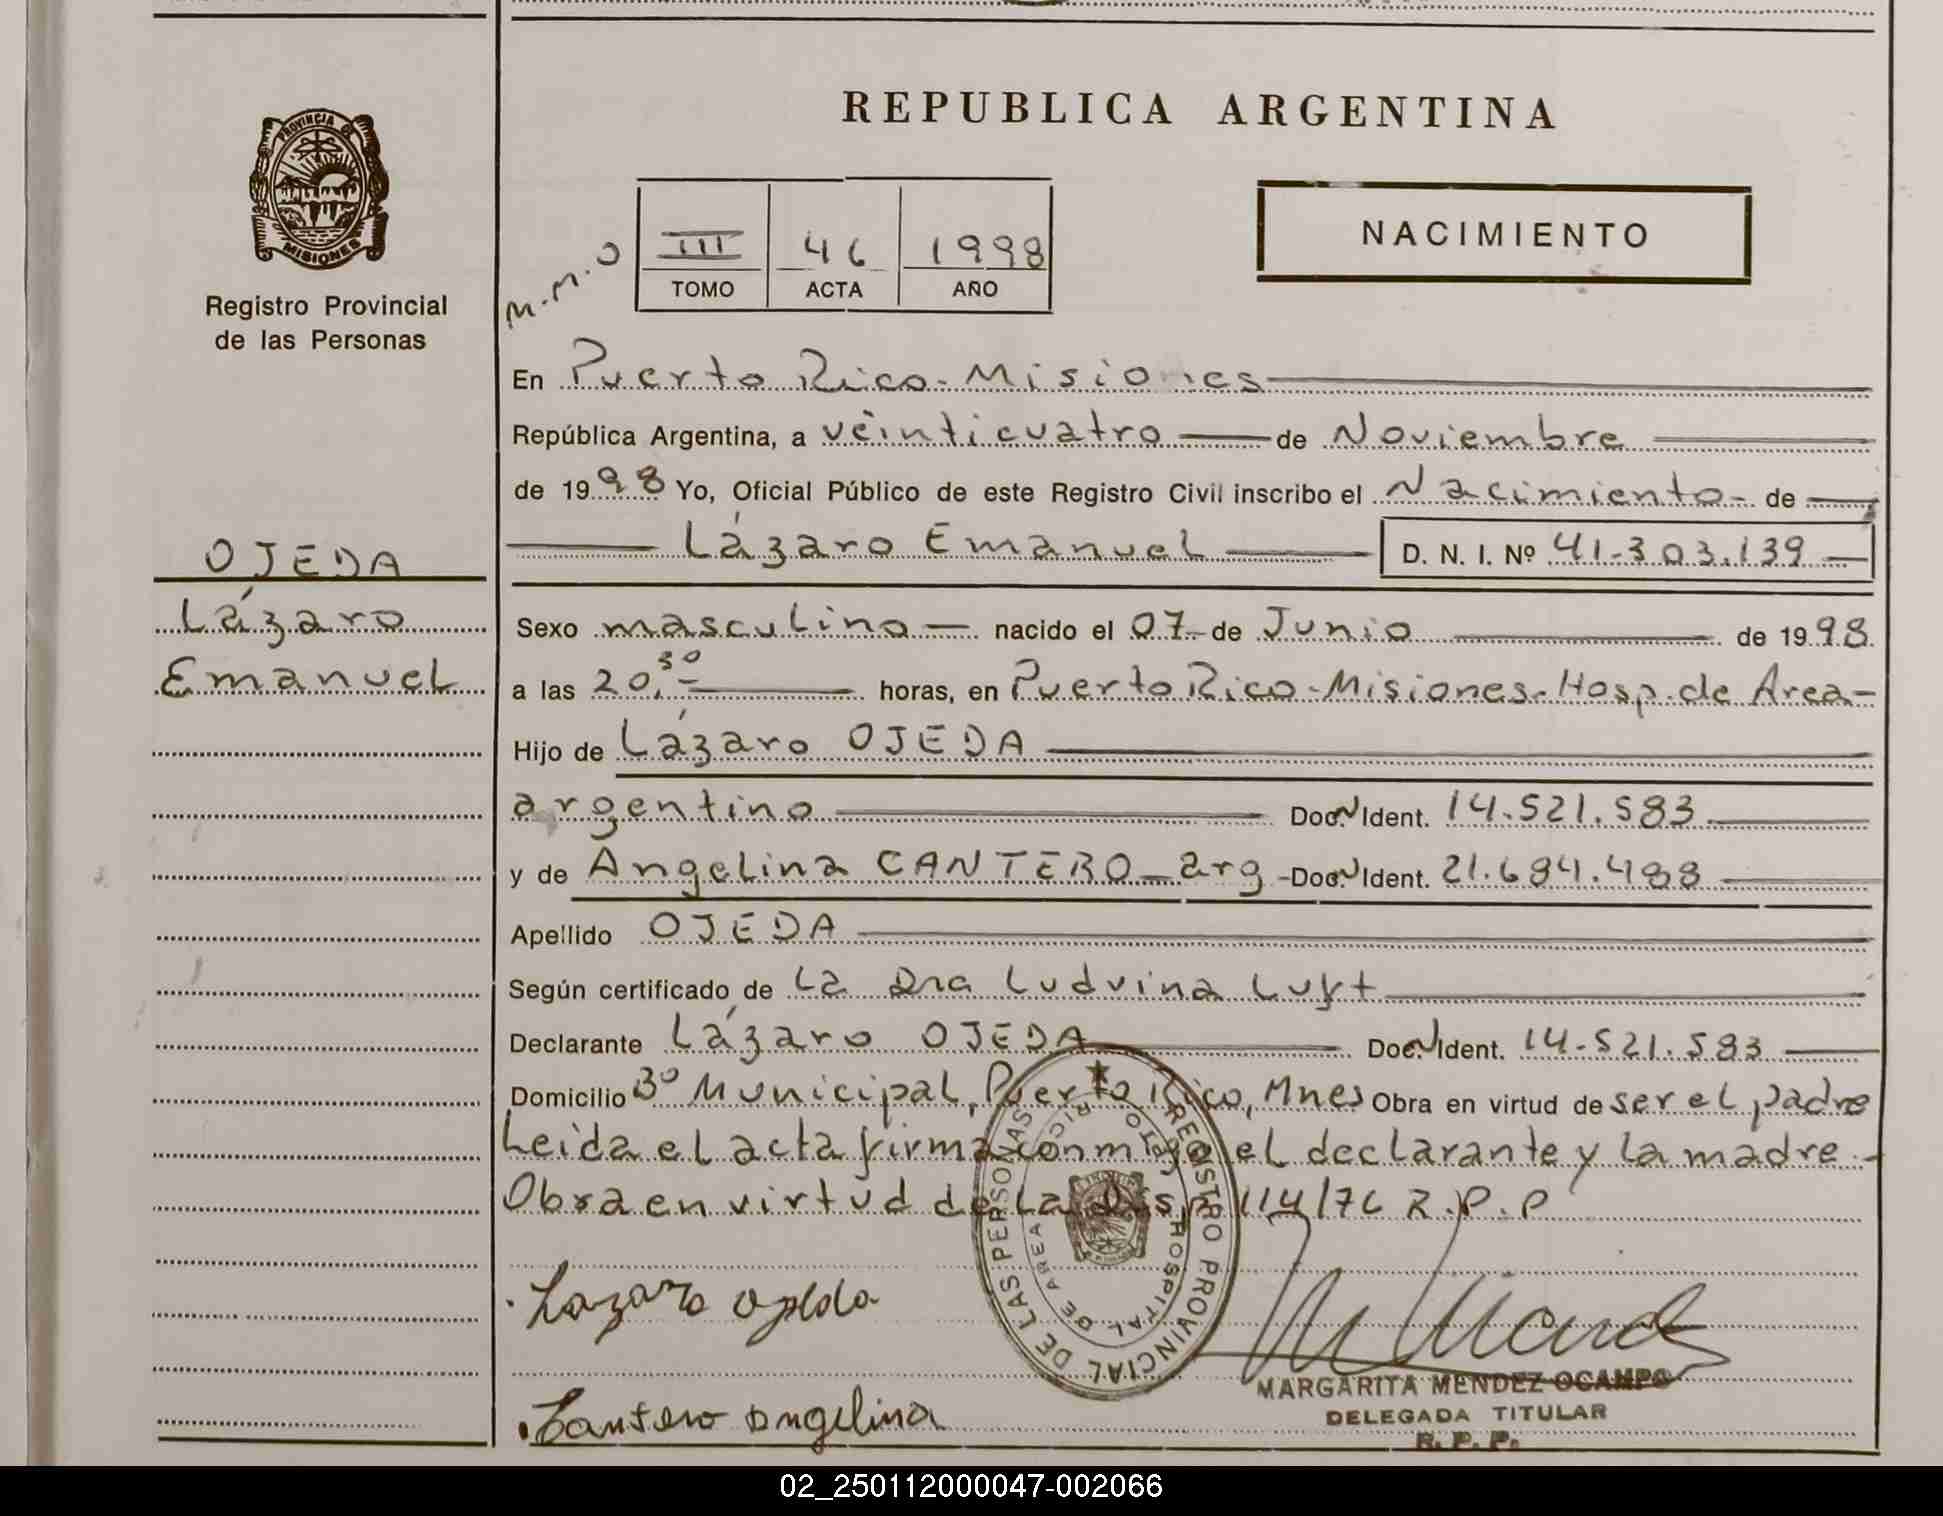 REPUBLICA ARGENTINA
PROVINCIA DE
MISIONES
Registro Provincial
de las Personas
M.M.O
III 46 1998
TOMO ACTA AÑO
NACIMIENTO
En Puerto Rico-Misiones
República Argentina, a veinticuatro de Noviembre
de 1998 Yo, Oficial Público de este Registro Civil inscribo el Nacimiento- de
Lázaro Emanuel D. N. I. Nº 41-303.139
OJEDA
Lázaro
Emanuel
Sexo masculino nacido el 07 de Junio de 1998.
a las 20,30 horas, en Puerto Rico-Misiones-Hosp. de Area-
Hijo de Lázaro OJEDA
argentino Doc. N Ident. 14.521.583
y de Angelina CANTERO arg - Doc. N Ident. 21.684.488
Apellido OJEDA
Según certificado de La Dra Ludvina Luft
Declarante Lázaro OJEDA Doc. N Ident. 14-521.583
Domicilio Bº Municipal, Puerto Rico, Mnes Obra en virtud de ser el padre
Leida el acta firma conmigo el declarante y la madre.-
Obra en virtud de la Disp. 114/76 R.P.P
REGISTRO PROVINCIAL DE LAS PERSONAS
HOSPITAL DE AREA PTO RICO
Lazaro ojeda
MARGARITA MENDEZ OCAMPO
DELEGADA TITULAR
R. P. P.
Cantero Angelina
02_250112000047-002066